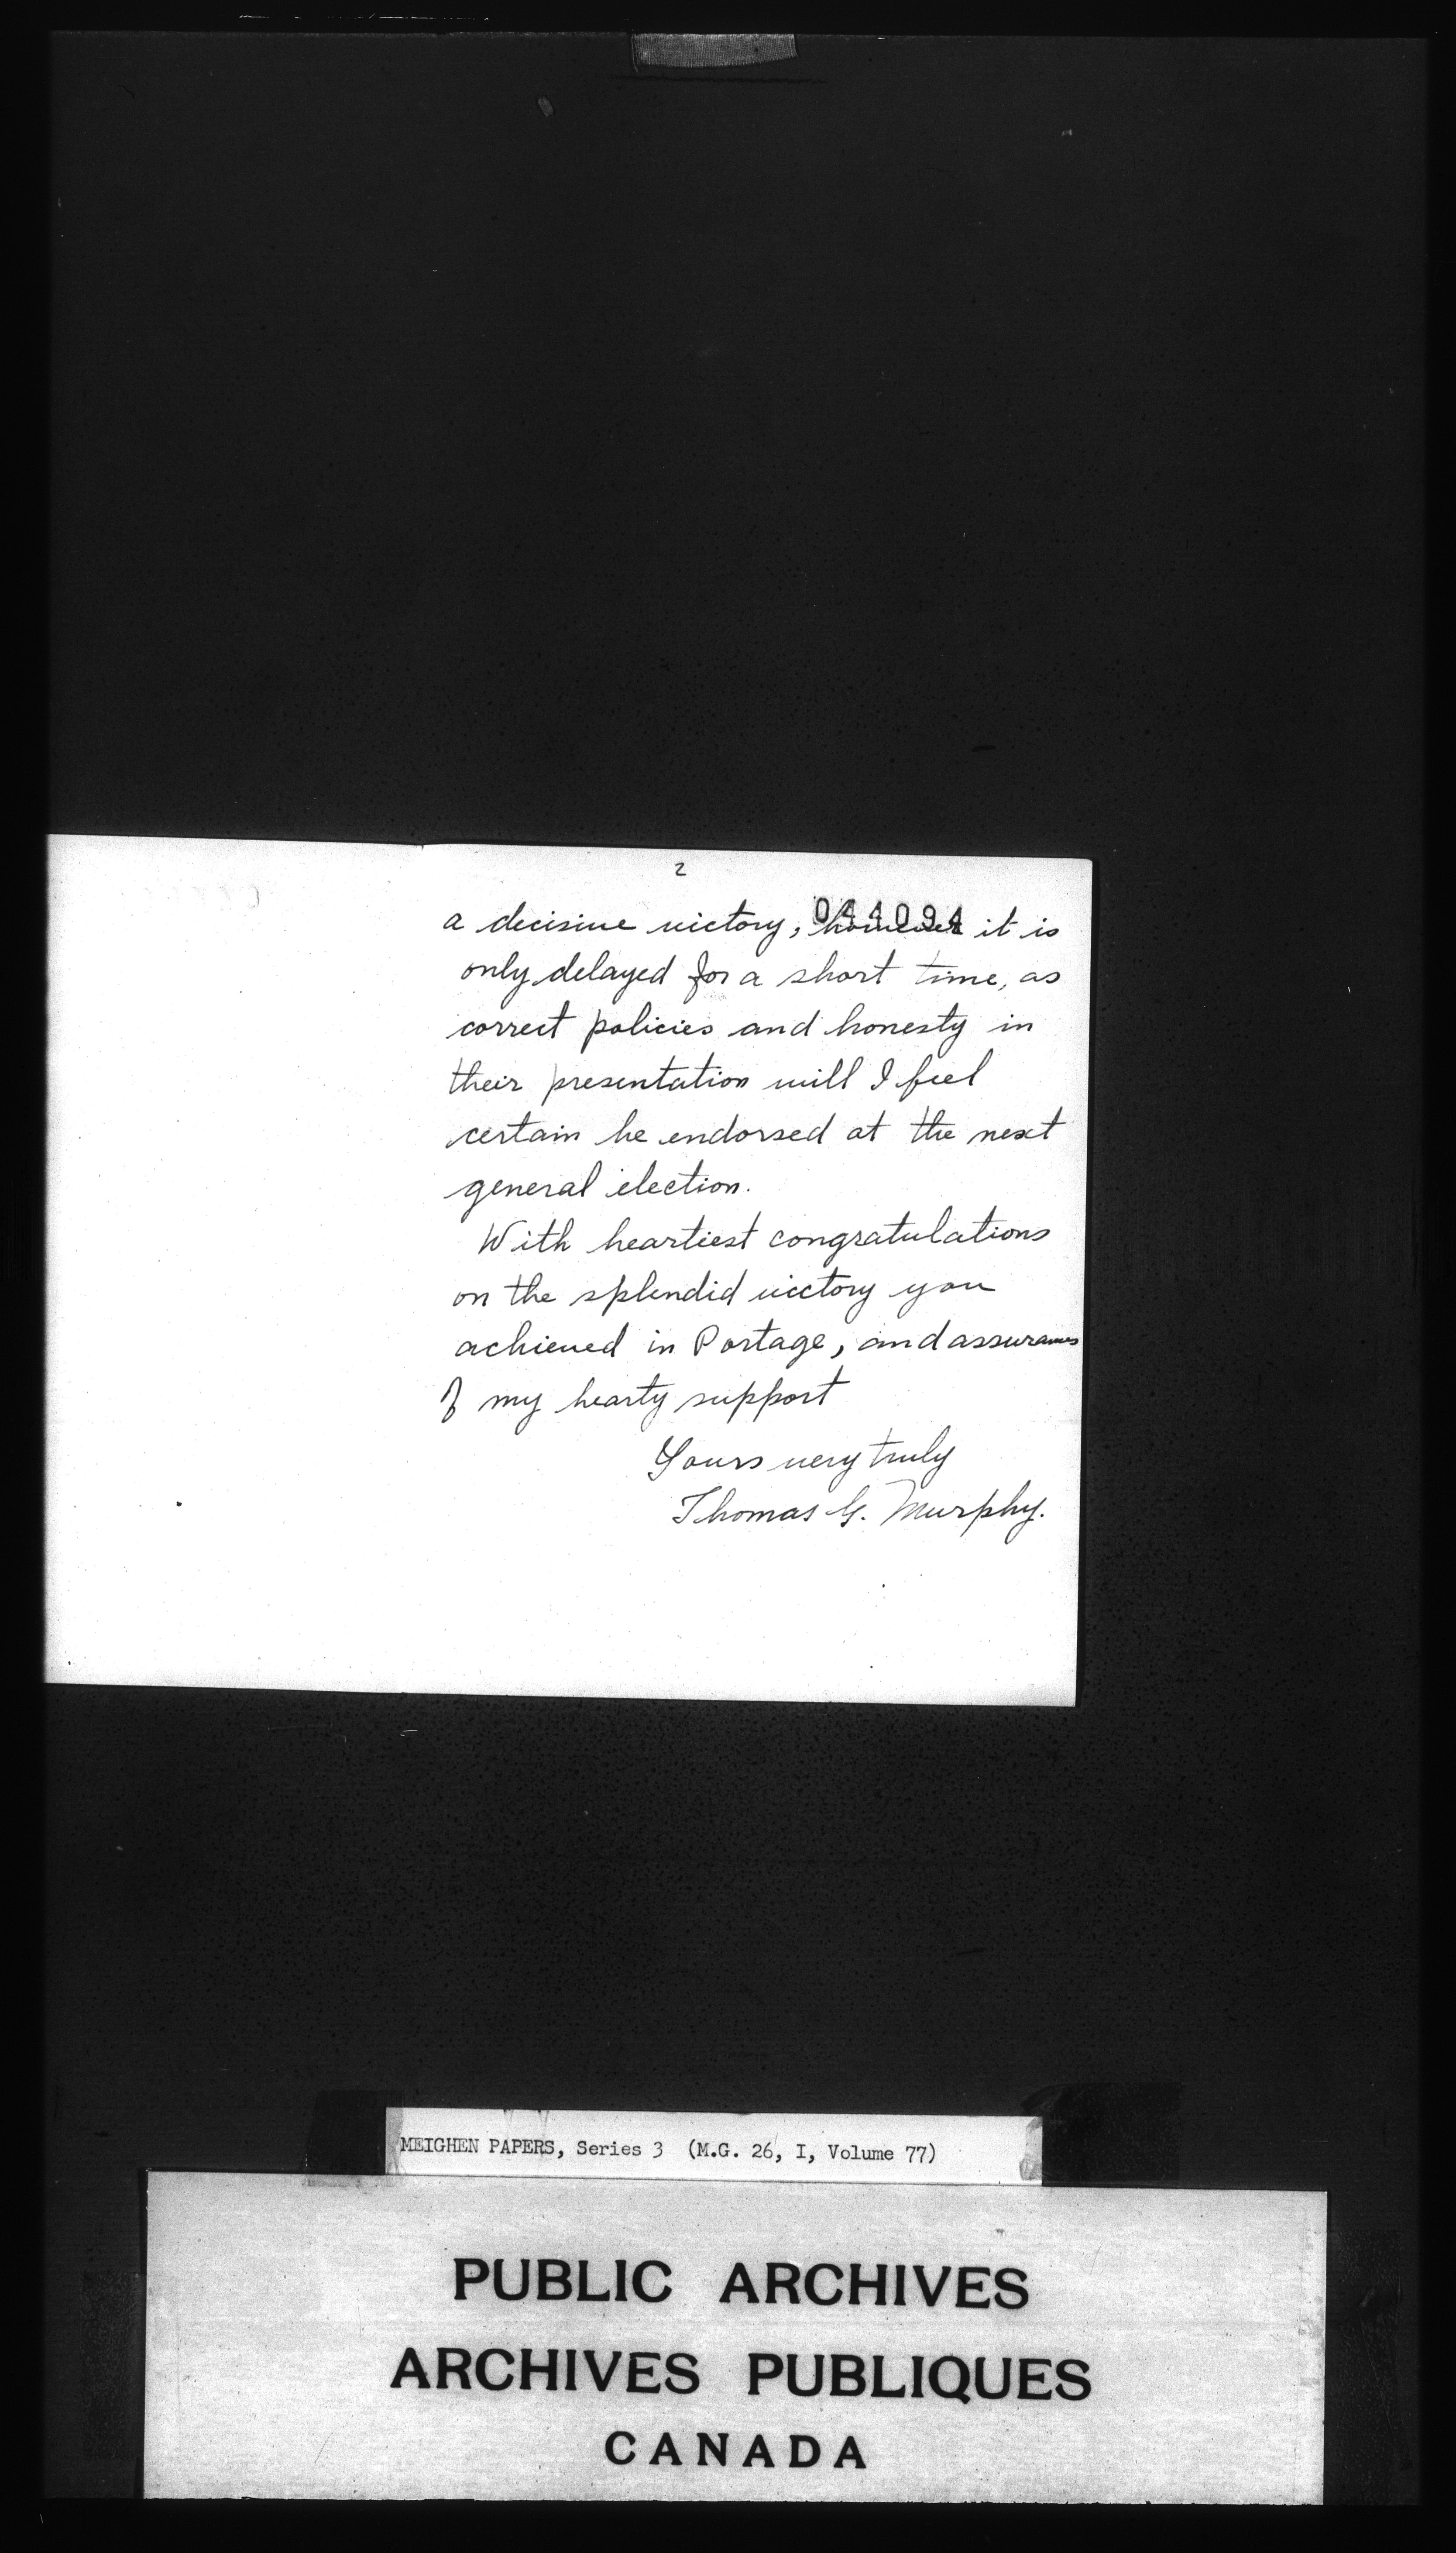 2
044094
a decisive victory, however it is
only delayed for a short time, as
correct policies and honesty in
their presentation will I feel
certain be endorsed at the next
general election.
With heartiest congratulations
on the splendid victory you
achieved in Portage, and assurances
of my hearty support
Yours very truly
Thomas G. Murphy.
MEIGHEN PAPERS, Series 3 (M.G. 26, I, Volume 77)
PUBLIC ARCHIVES
ARCHIVES PUBLIQUES
CANADA